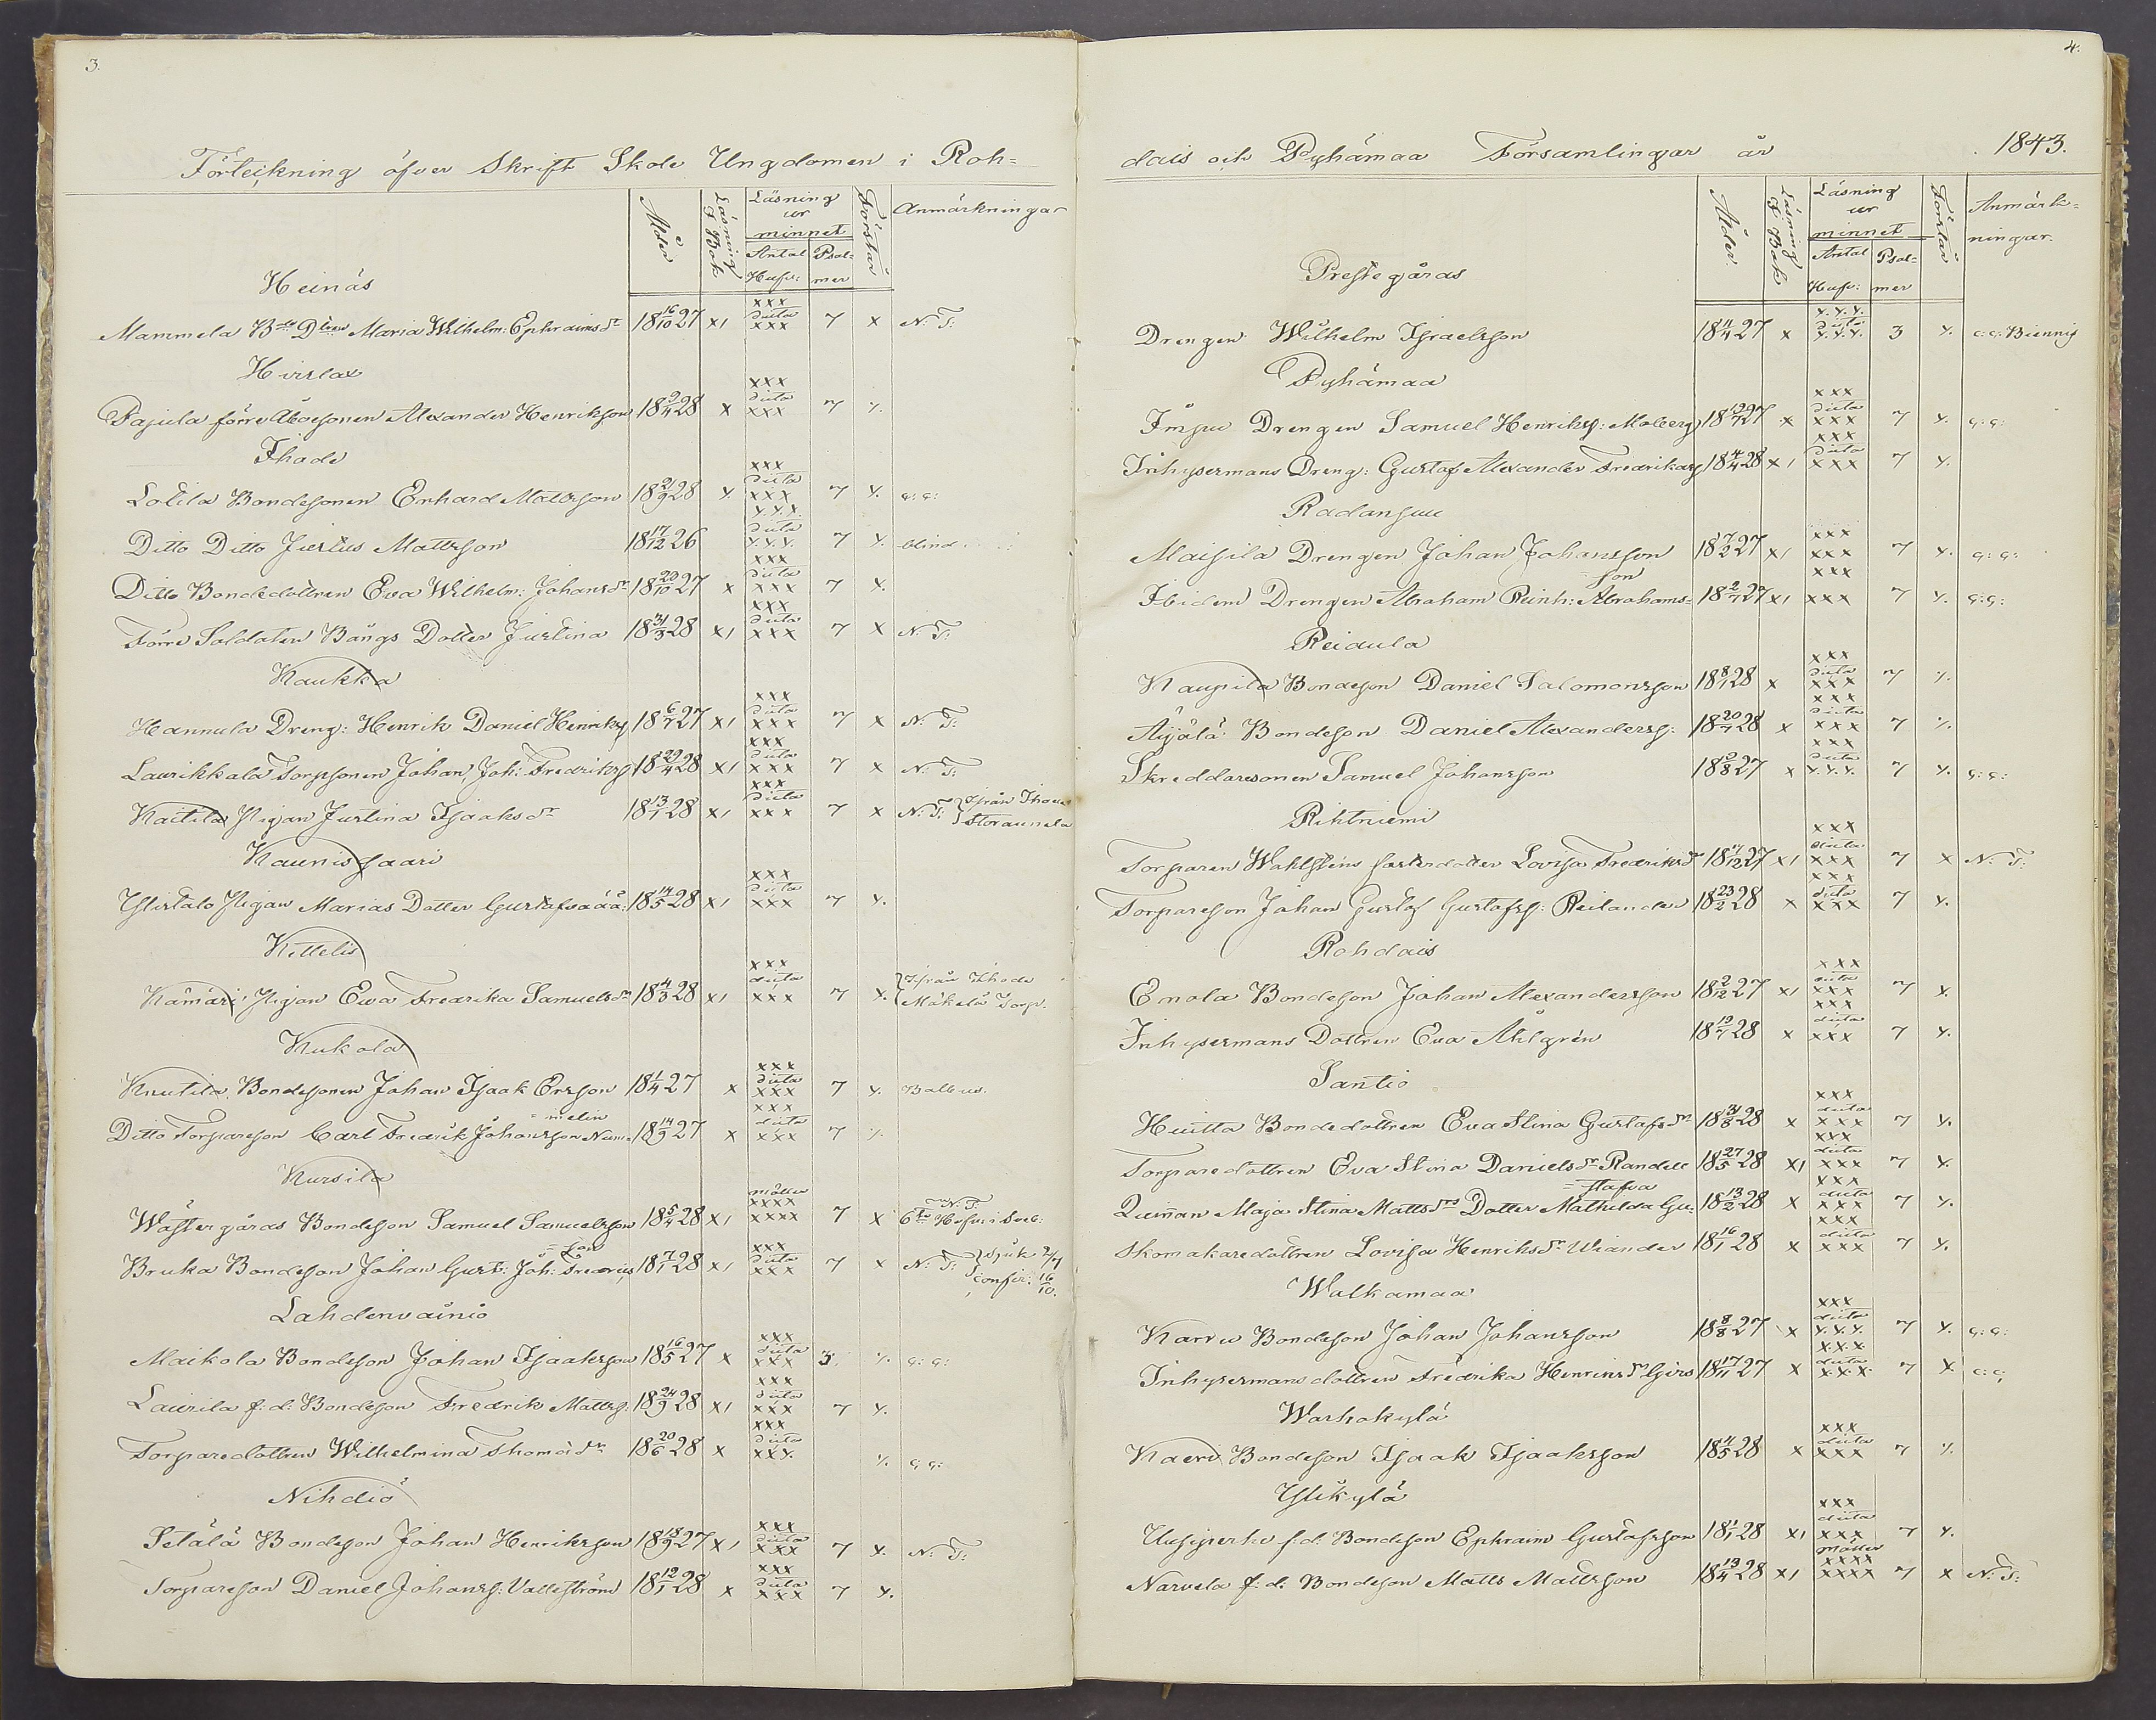 3.
Förteckning öfver Skrift Skole Ungdomen i Roh=
Ålder Läsning i Bok Läsning ur minnet Förstår Anmärkningar
Antal Hufv: Psal=mer
Heinäs
Mammela Maria Wilhelm: Ephraimsdr 18 16/10 27 x1 xxx dito xxx 7 x N: T:
Hirslax
Pajula förre Åbosonen Alexander Henriksson 18 9/4 28 x xxx dito xxx 7 x.
Ihode
Lotila Bondesonen Enhard Mattsson 18 21/9 28 x xxx dito xxx 7 x. c: c:
Ditto Ditto Justus Mattsson 18 17/12 26 x.x.x. dito x.x.x. 7 x. blind
Ditto Bondedottren Eva Wilhelm: Johansdr 18 20/10 27 x xxx dito xxx 7 x.
Förre Soldaten Bångs Dotter Justina 18 31/3 28 x1 xxx dito xxx 7 x N: T:
Kaukka
Hannula Dreng: Henrik Daniel Henriks 18 6/7 27 x1 xxx dito xxx 7 x N: T:
Laurikkala Torpsonen Johan Joh: Fredriks 18 29/4 28 x1 xxx dito xxx 7 x N: T:
Kaitila Pigan Justina Isaaksdr 18 13/1 28 x1 xxx dito xxx 7 x N: T: ifrån Ihode
Storaunela
Kaunissaari
Ylistalo Pigan Marias Dotter Gustafva 18 14/5 28 x1 xxx dito xxx 7 x.
Kittelis
Kämäri Pigan Eva Fredrika Samuelsdr 18 4/3 28 x1 xxx dito xxx 7 x. ifrån Ihode
Mäkelä Torp.
Kukola
Knutila Bondesonen Johan Isaak Ersson 18 1/4 27 x xxx dito xxx 7 x. Balbus.
=melin
Ditto Torpareson Carl Fredrik Johansson Num= 18 14/9 27 x xxx dito xxx 7 x.
Kursila
Wästergårds Bondeson Samuel Samuelsson 18 5/4 28 x1 möller xxxx xxxx 7 x N: T:
6te Hufvu: i Sveb:
=son
Bruka Bondeson Johan Gust: Joh: Fredriks 18 7/1 28 x1 xxx dito xxx 7 x N: T: sjuk 2/7
confir: 16/10.
Lahdenvainio
Maikola Bondeson Johan Isaaksson 18 16/5 27 x xxx dito xxx 3. x. c: c:
Laurila f: d: Bondeson Fredrik Matts: 18 24/9 28 x1 xxx dito xxx 7 x.
Torparedottren Wilhelmina Thomädr 18 20/6 28 x xxx dito xxx x. c: c:
Nihdiö
Setälä Bondeson Johan Henriksson 18 18/9 27 x1 xxx dito xxx 7 x. N: T:
Torpareson Daniel Johans: Valleström 18 12/1 28 x xxx dito xxx 7 x.
4.
dais och Pyhämaa Församlingar år 1843.
Ålder. Läsning i Bok Läsning ur minnet Förstår Anmärk=ningar.
Antal Hufv: Psal=mer
Prestegårds
Drengen Wilhelm Israelsson 18 4/4 27 x x.x.x. dito x.x.x. 3 x. c: c: Biennis
Pyhämaa
Impu Drengen Samuel Henriks: Moberg 18 19/7 27 x xxx dito xxx 7 x. c: c:
Inhysermans Dreng: Gustaf Alexander Fredriks 18 4/4 28 x1 xxx dito xxx 7 x.
Radansuu
Maisila Drengen Johan Johansson 18 7/2 27 x1 xxx xxx 7 x. c: c:
son
Ibidem Drengen Abraham Reinh: Abrahams= 18 2/7 27 x1 xxx xxx 7 x. c: c:
Reidula
Kaupila Bondeson Daniel Salomonsson 18 8/1 28 x xxx dito xxx 7 x.
Äijälä Bondeson Daniel Alexanders: 18 20/7 28 x xxx dito xxx 7 x.
Skreddaresonen Samuel Johansson 18 9/8 27 x xxx dito x.x.x. 7 x. c: c:
Rihtniemi
Torparen Wahlstens fosterdotter Lovisa Fredriksdr 18 17/12 27 x1 xxx dito xxx 7 x N: T:
Torpareson Johan Gustaf Gustafss: Reilander 18 23/2 28 x xxx dito xxx 7 x.
Rohdais
Enola Bondeson Johan Alexandersson 18 2/12 27 x1 xxx dito xxx 7 x.
Inhysermans Dottren Eva Åhlgrén 18 19/7 28 x xxx dito xxx 7 x.
Santio
Huitta Bondedottren Eva Stina Gustafsdr 18 31/8 28 x xxx dito xxx 7 x.
Torparedottren Eva Stina Danielsdr Randell 18 27/5 28 x1 xxx dito xxx 7 x.
=stafva
Quinnan Maja Stina Mattsdrs Dotter Mathilda Gu= 18 13/2 28 x xxx dito xxx 7 x.
Skomakaredottren Lovisa Henriksdr Wiander 18 16/1 28 x xxx dito xxx 7 x.
Walkamaa
Karru Bondeson Johan Johansson 18 8/8 27 x xxx dito x.x.x. 7 x. c: c:
Inhysermans dottren Fredrika Henriksdr Girs 18 17/11 27 x x.x.x. dito x.x.x. 7 x c: c:
Warhokylä
Kaeri Bondeson Isaak Isaaksson 18 4/5 28 x xxx dito xxx 7 x.
Ylikylä
Uusiperko f: d: Bondeson Ephraim Gustafsson 18 11/1 28 x1 xxx dito xxx 7 x.
Narvela f: d: Bondeson Matts Mattsson 18 19/4 28 x1 möller xxxx xxxx 7 x N: T: